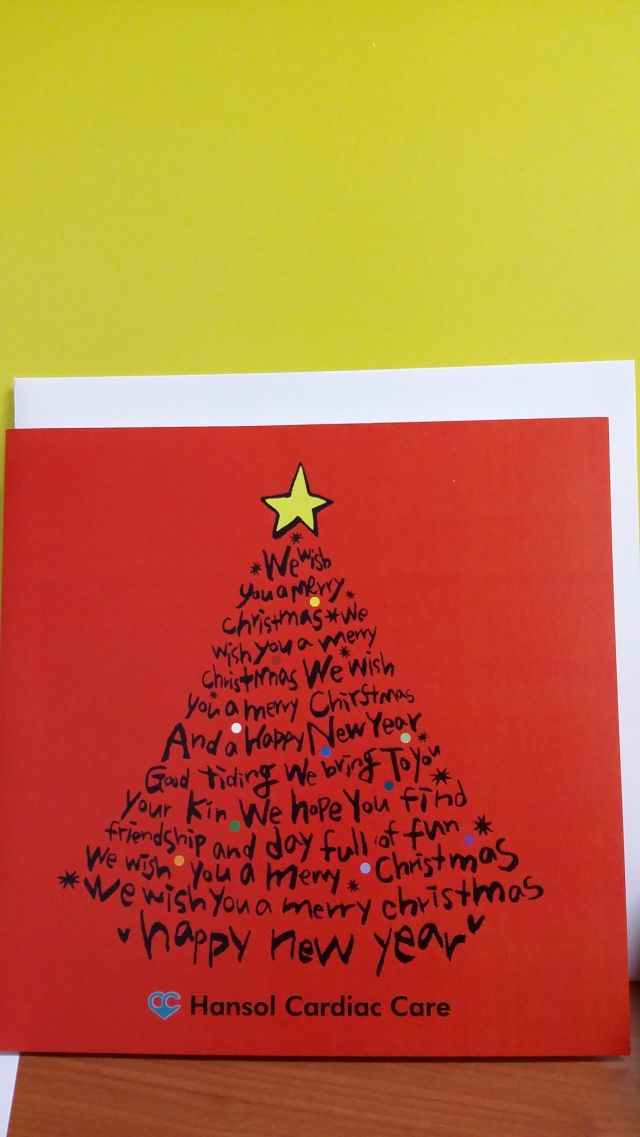 We wish
you a merry
christmas * We
wish you a merry
christmas We wish
you a merry Chirstmas
And a Happy New Year
Good tiding We bring To you
your Kin We hope You find
friendship and day full of fun
We wish you a merry Christmas
We wish You a merry christmas
happy new year
CC Hansol Cardiac Care